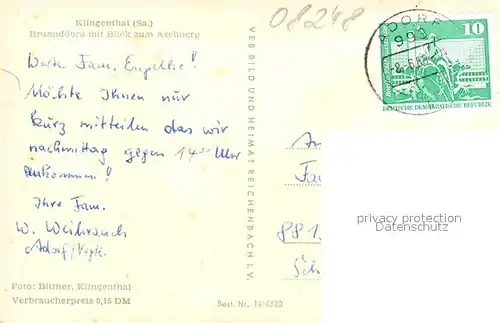 Klingenthal (Sa.)
Brunndöbra mit Blick zum Aschberg
Werte Fam. Engelke!
Möchte Ihnen nur
kurz mitteilen das wir
nachmittag gegen 14⁰⁰ Uhr
ankommen!
Ihre Fam.
W. Weihrauch
Adorf/Vogtl.
Foto: Bittner, Klingenthal
Verbraucherpreis 0,15 DM
VEB BILD UND HEIMAT REICHENBACH I. V.
Best. Nr. 14/4320
08248
ADORF
993
10
DEUTSCHE DEMOKRATISCHE REPUBLIK
An
Fa
privacy protection
Datenschutz